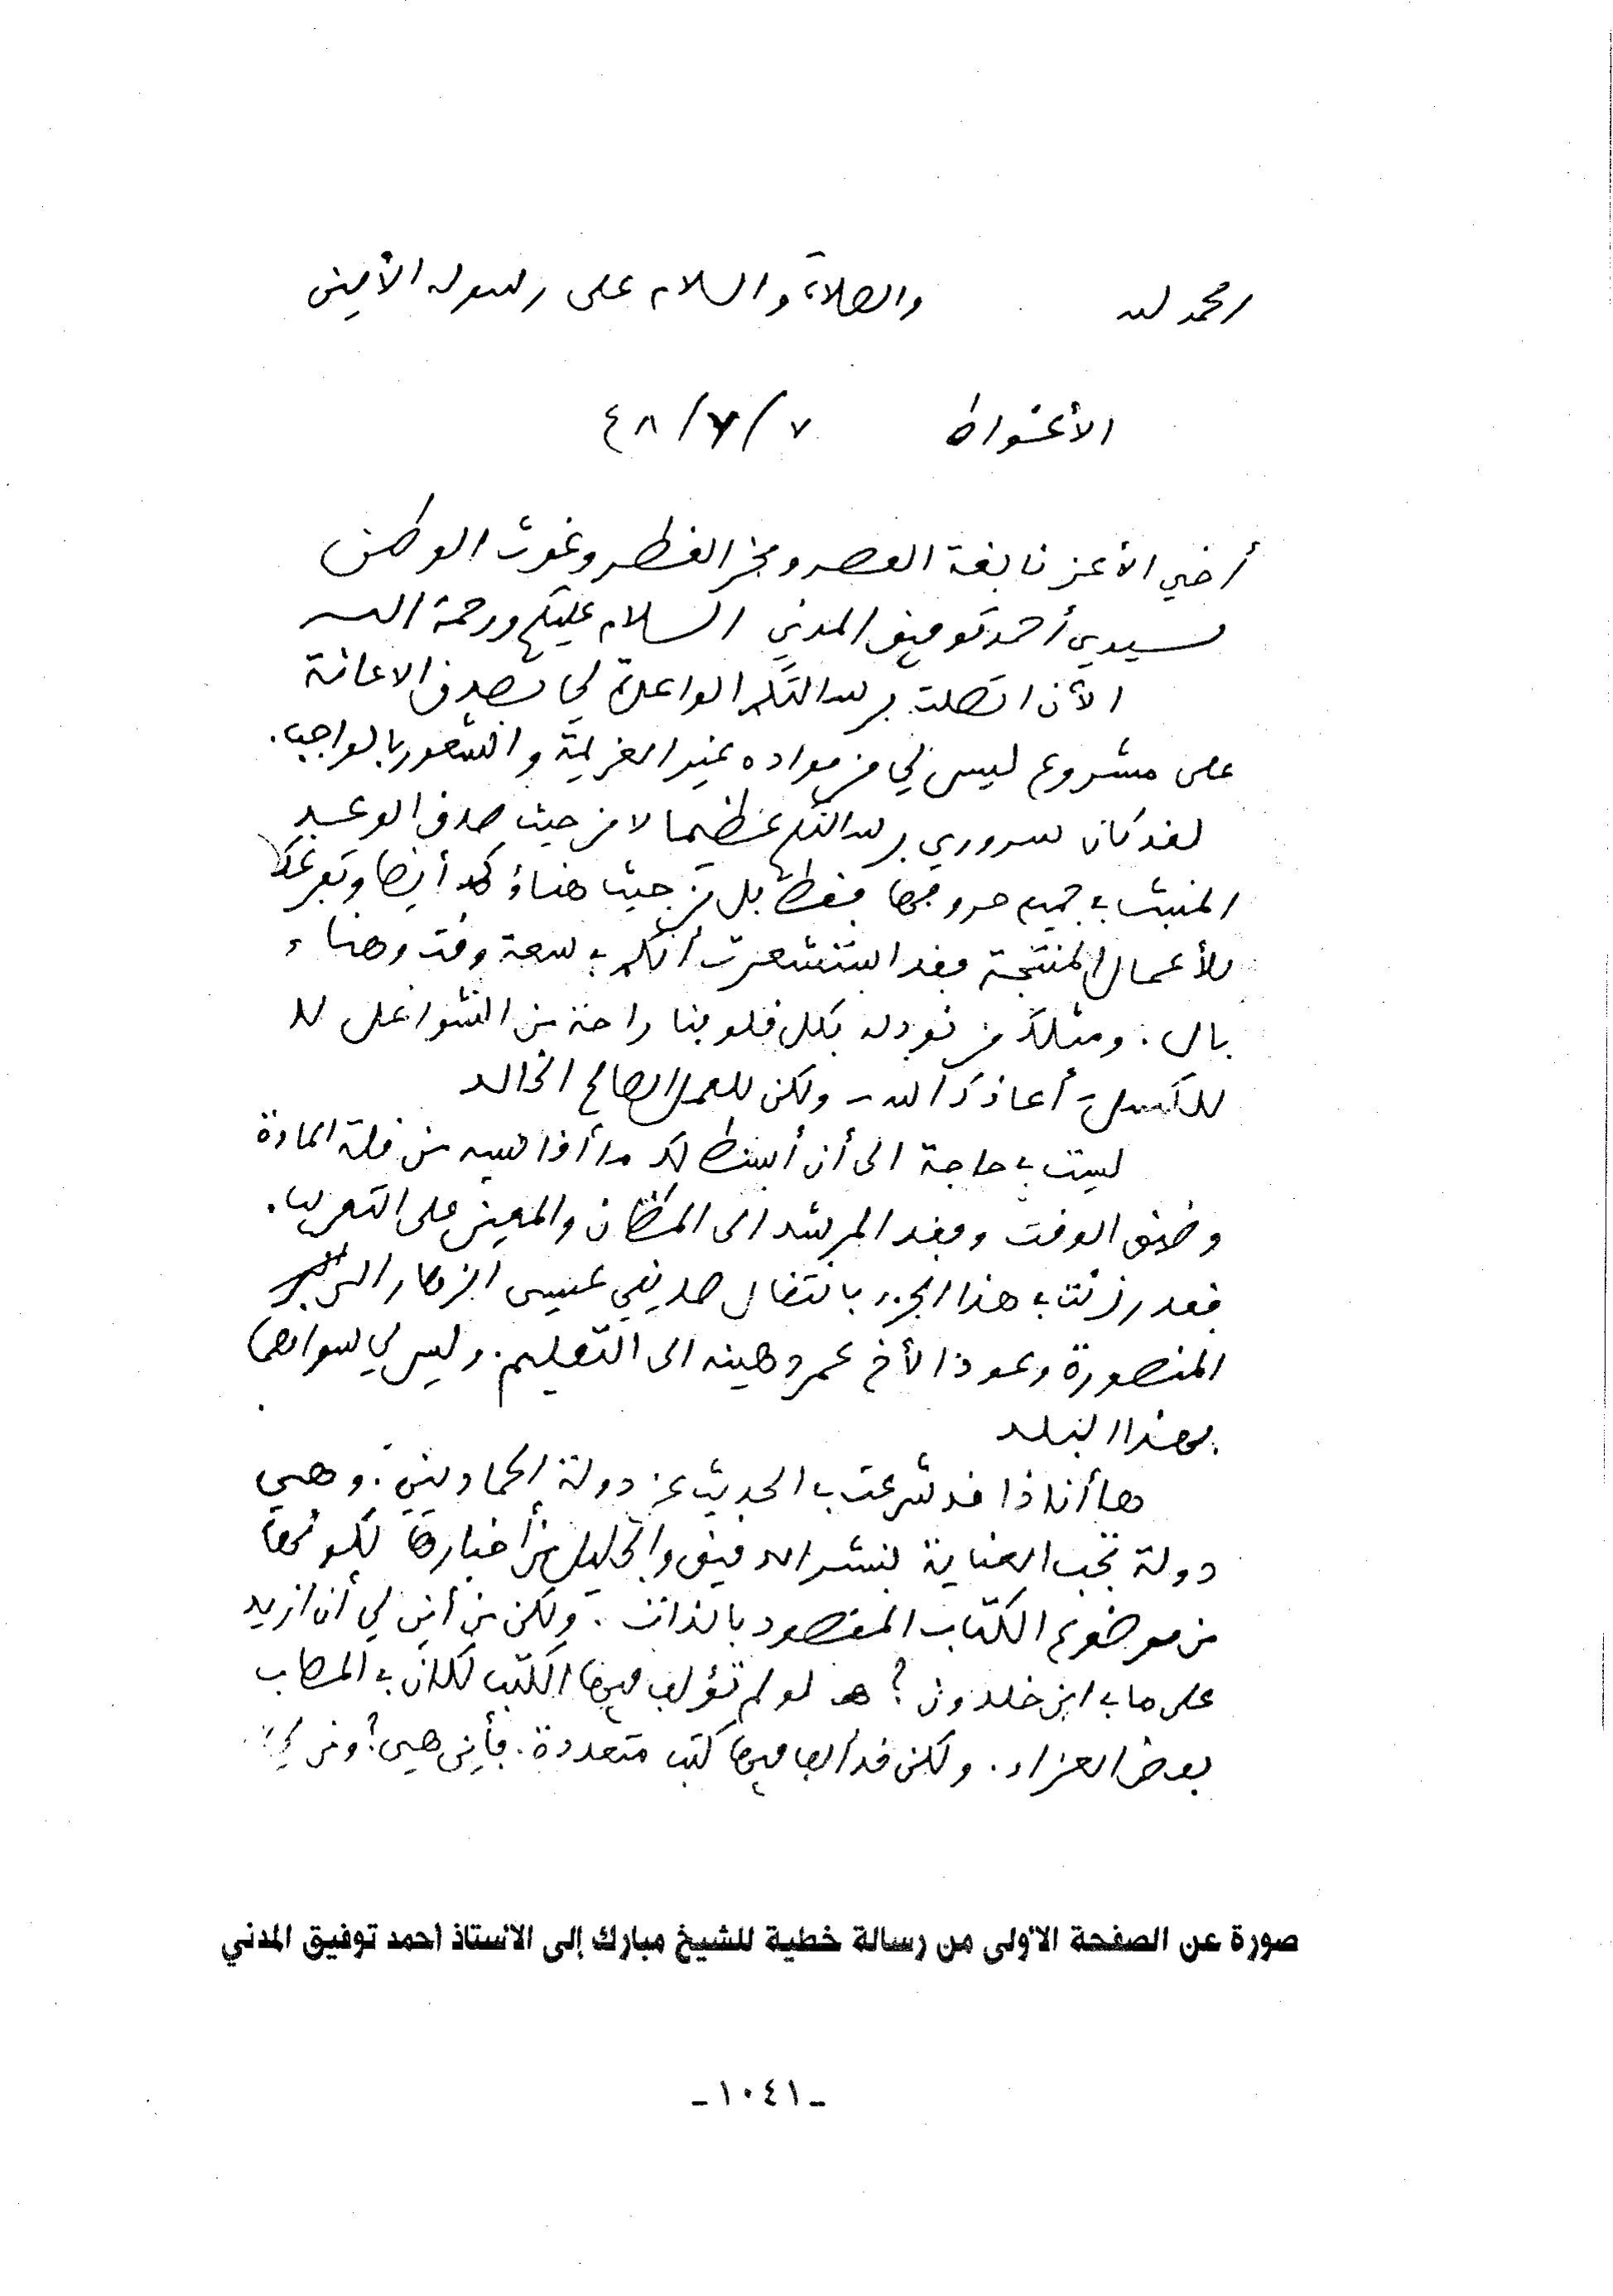 الحمد لله والصلاة والسلام على رسوله الأمين
الأغواط ٧/٧/٤٨
أخي الأعز نابغة العصر وفخر القطر وغوث الوطن
سيدي أحمد توفيق المدني السلام عليكم ورحمة الله
الآن اتصلت برسالتكم الواعدة لي بصدق الاعانة
على مشروع ليس لي من مواده غير العزيمة والشعور بالواجب.
لقد كان سروري برسالتكم عظيما لا من حيث صدق الوعد
المنبث في جميع حروفها فقط بل من حيث هناؤكم أيضا وتفرغكم
للأعمال المنتجة فقد استشعرت أنكم في سعة وقت وهناء
بال. ومثلكم من نود له بكل قلوبنا راحة من الشواغل لا
للكسل - أعاذكم الله - ولكن للعمل الصالح الخالد
لست في حاجة الى أن أبسط لكم ما أقاسيه من قلة المادة
وضيق الوقت وفقد المرشد الى المظان والمعين على التعريب.
فقد رزئت في هذا الجزء بانتقال صديقي عيسى الزهار الى
المنصورة وعود الأخ عمر دهينه الى التعليم. وليس لي سواهما
بهذا البلد
ها أنا ذا قد شرعت في الحديث عن دولة الحماديين. وهي
دولة تجب العناية بنشر الدقيق والجليل من أخبارها لكونها
من موضوع الكتاب المقصود بالذات. ولكن من أين لي أن أزيد
على ما في ابن خلدون؟ لو لم تؤلف فيها الكتب لكان في المصاب
بعض العزاء. ولكن قد ألفت فيها كتب متعددة. فأين هي؟ ومن لي
صورة عن الصفحة الأولى من رسالة خطية للشيخ مبارك إلى الأستاذ أحمد توفيق المدني
-١٠٤١-